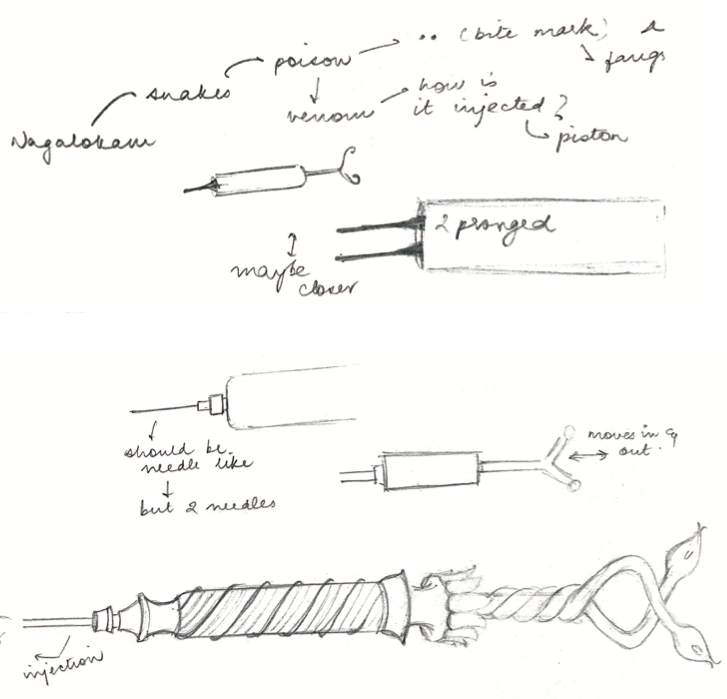 Nagalokam
snakes
poison
(bite mark)
fangs
venom
how is
it injected?
piston
2 pronged
maybe
closer
should be
needle like
but 2 needles
moves in &
out.
injection